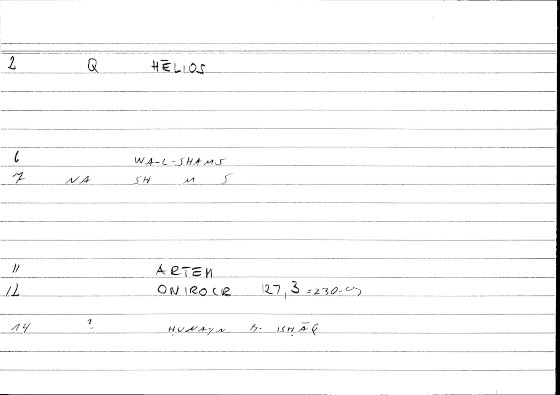 2 Q HĒLIOS
6 WA-L-SHAMS
7 NA SH M S
11 ARTEM
12 ONIROCR 127,3 =230-
14 ? HUNAYN B. ISHĀQ